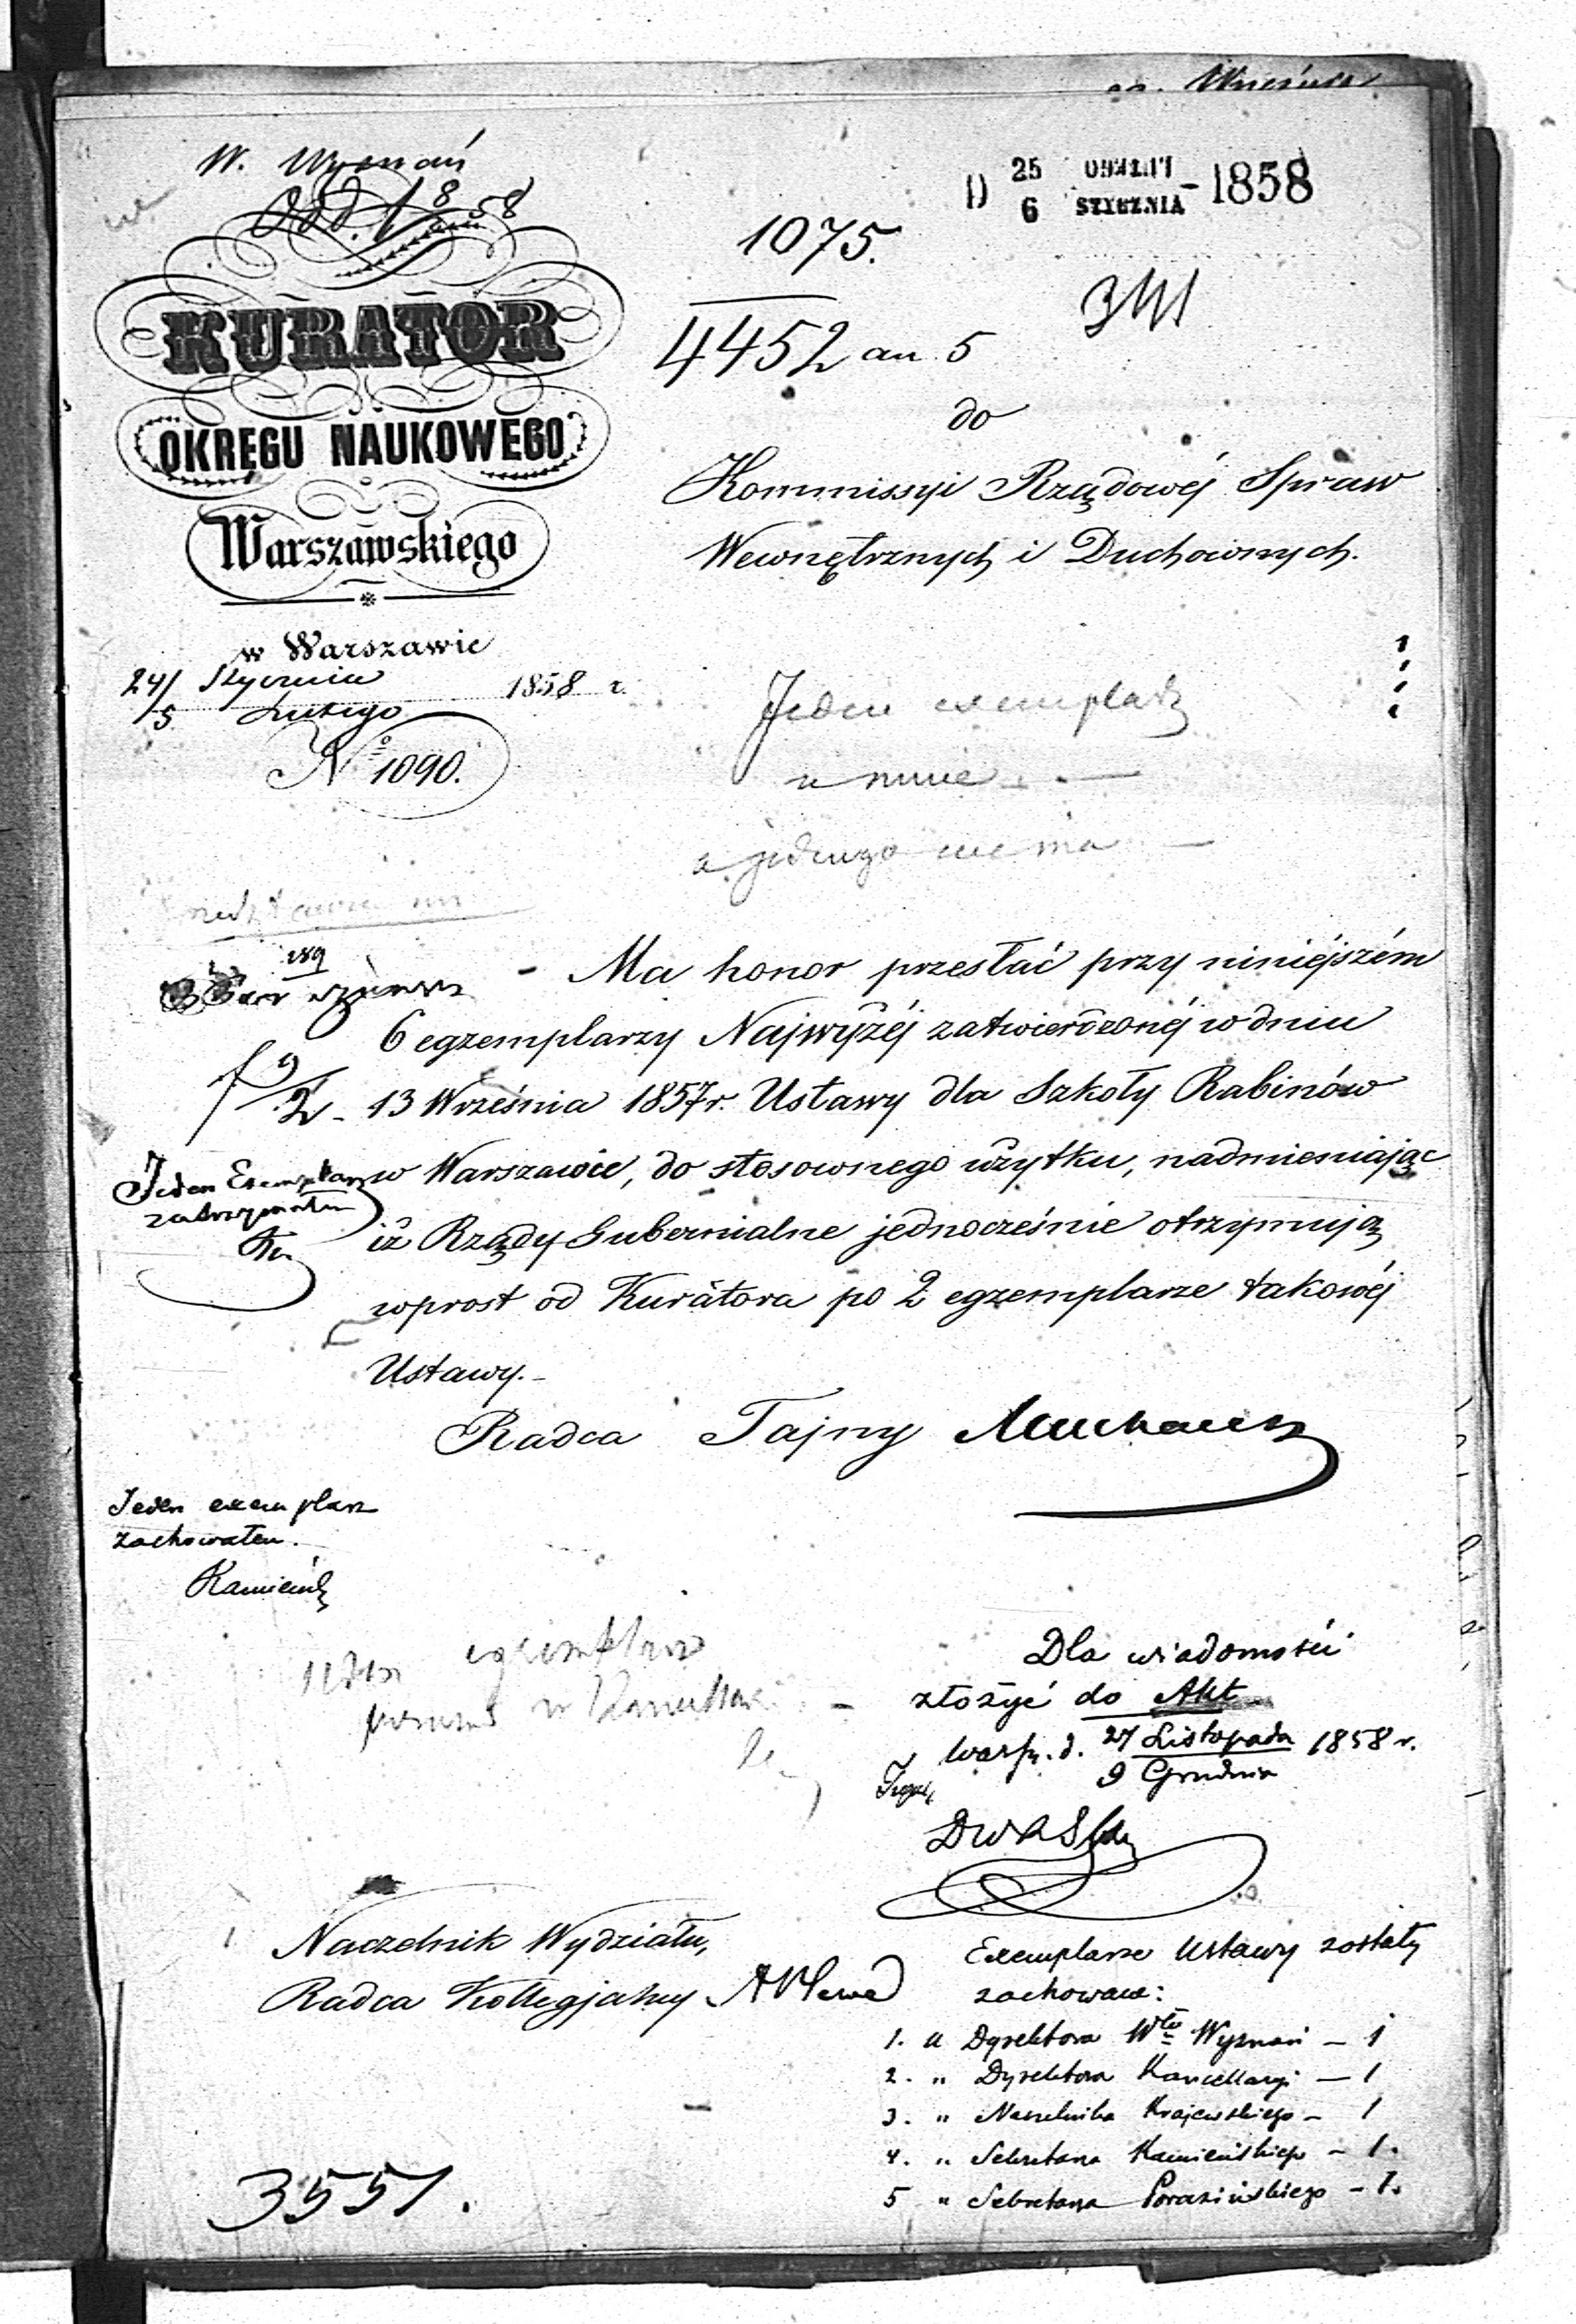 W. Wyznań
1858
D 25 / 6 STYCZNIA - 1858
1075.
4452 an 5
341
KURATOR
OKRĘGU NAUKOWEGO
Warszawskiego
w Warszawie
24/5 Stycznia Lutego 1858 r.
№ 1090.
do
Kommissyi Rządowéj Spraw
Wewnętrznych i Duchownych.
Jeden exemplarz
u mnie
a jednego nie ma
Ma honor przesłać przy niniéjszém
6 egzemplarzy Najwyżéj zatwierdzonéj w dniu
13 Września 1857 r. Ustawy dla Szkoły Rabinów
w Warszawie, do stosownego użytku, nadmieniając
iż Rządy Gubernialne jednocześnie otrzymują
wprost od Kuratora po 2 egzemplarze takowéj
Ustawy.
Radca Tajny Muchanow
Jeden Exemplarz
zatrzymałem
Jeden exemplarz
zachowałem.
Kamieński
egzemplarz
Dla wiadomości
złożyć do Akt
Warsz. d. 27 Listopada / 9 Grudnia 1858 r.
Naczelnik Wydziału,
Radca Kollegjalny
Exemplarze Ustawy zostały
zachowane:
1. u Dyrektora Włu Wyznań — 1
2. " Dyrektora Kancellaryi — 1
3. " Naczelnika Krajewskiego — 1
4. " Sekretarza Kamieńskiego — 1.
5 " Sekretarza Porazińskiego — 1.
3551.